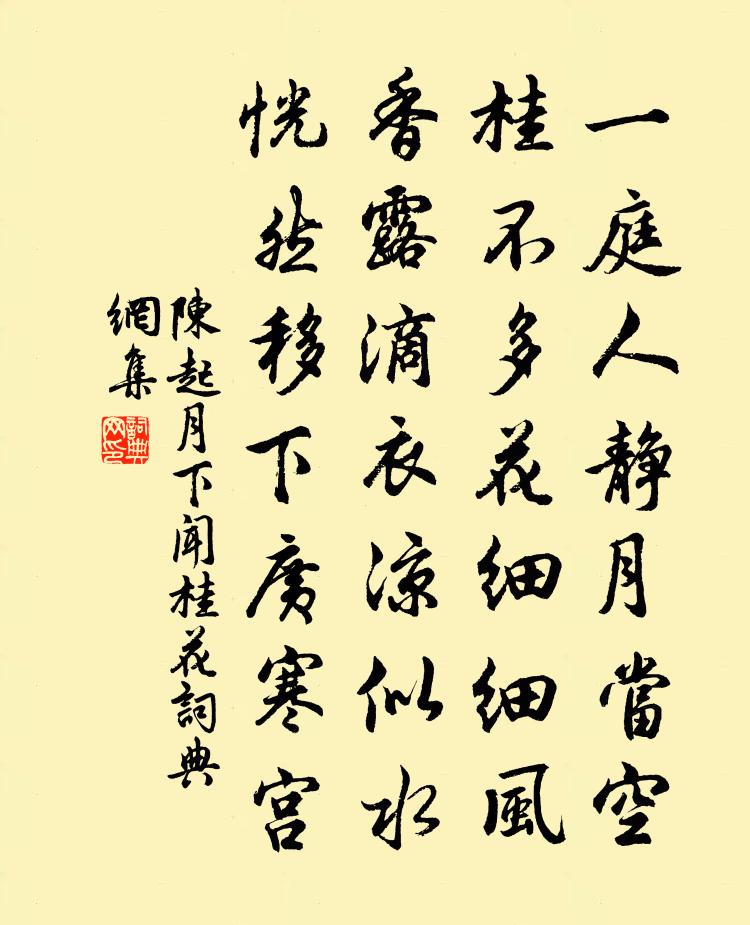 一庭人靜月當空
桂不多花細細風
香露滴衣涼似水
恍然移下廣寒宮
陳起月下聞桂花詞典
網集
詞典
网印